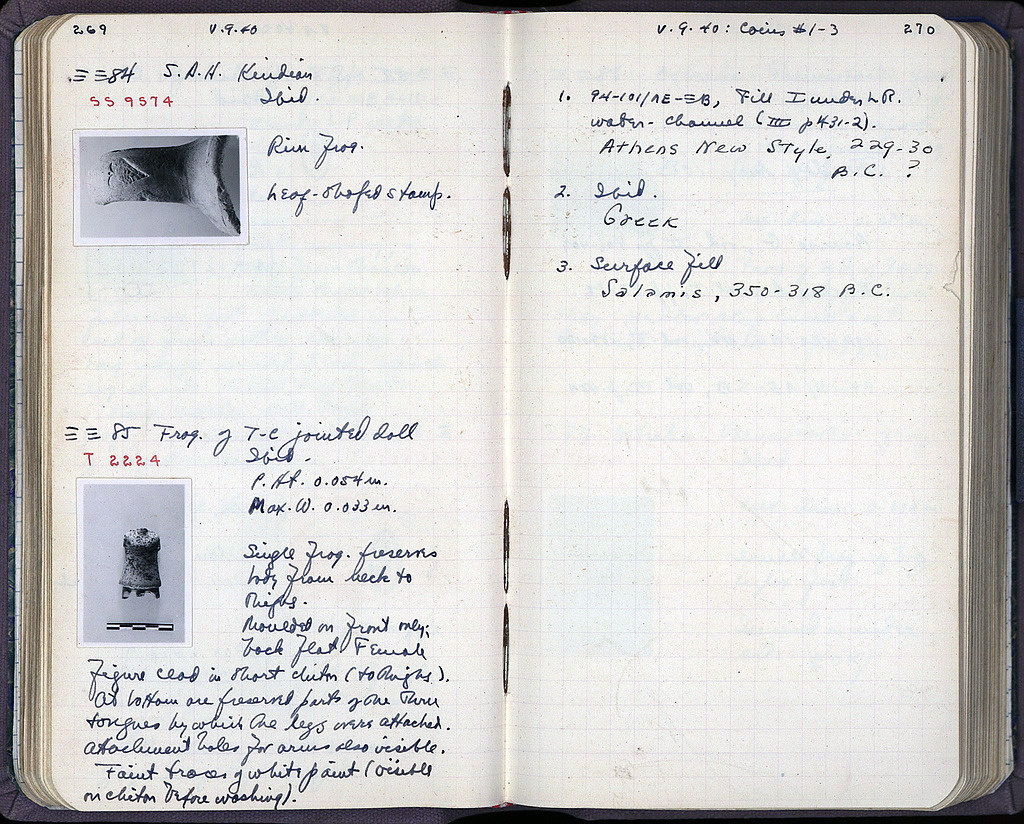 269 V.9.40
ΞΞ84 S.A.H. Knidian
SS 9574 Ibid.
Rim frag.
Leaf-shaped stamp.
ΞΞ 85 Frag. of T-C jointed doll
T 2224 Ibid.
P. Ht. 0.054 m.
Max. W. 0.033 m.
Single frag. preserves
body from neck to
thighs.
Moulded on front only;
back flat. Female
figure clad in short chiton (to thighs).
At bottom are preserved parts of the three
tongues by which the legs were attached.
Attachment holes for arms also visible.
Faint traces of white paint (visible
on chiton before washing).
V.9.40: Coins #1-3 270
1. 94-101/ΛΕ-ΞΒ, Fill I under LR.
water-channel (III p431-2).
Athens New Style, 229-30
B.C. ?
2. Ibid.
Greek
3. Surface fill
Salamis, 350-318 B.C.